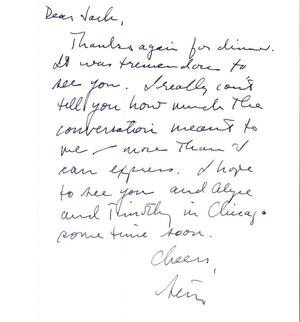 Dear Jack,
Thanks again for dinner.
It was tremendous to
see you. I really can't
tell you how much the
conversation meant to
me — more than I
can express. I hope
to see you and
and Timothy in Chicago
some time soon.
Cheers,